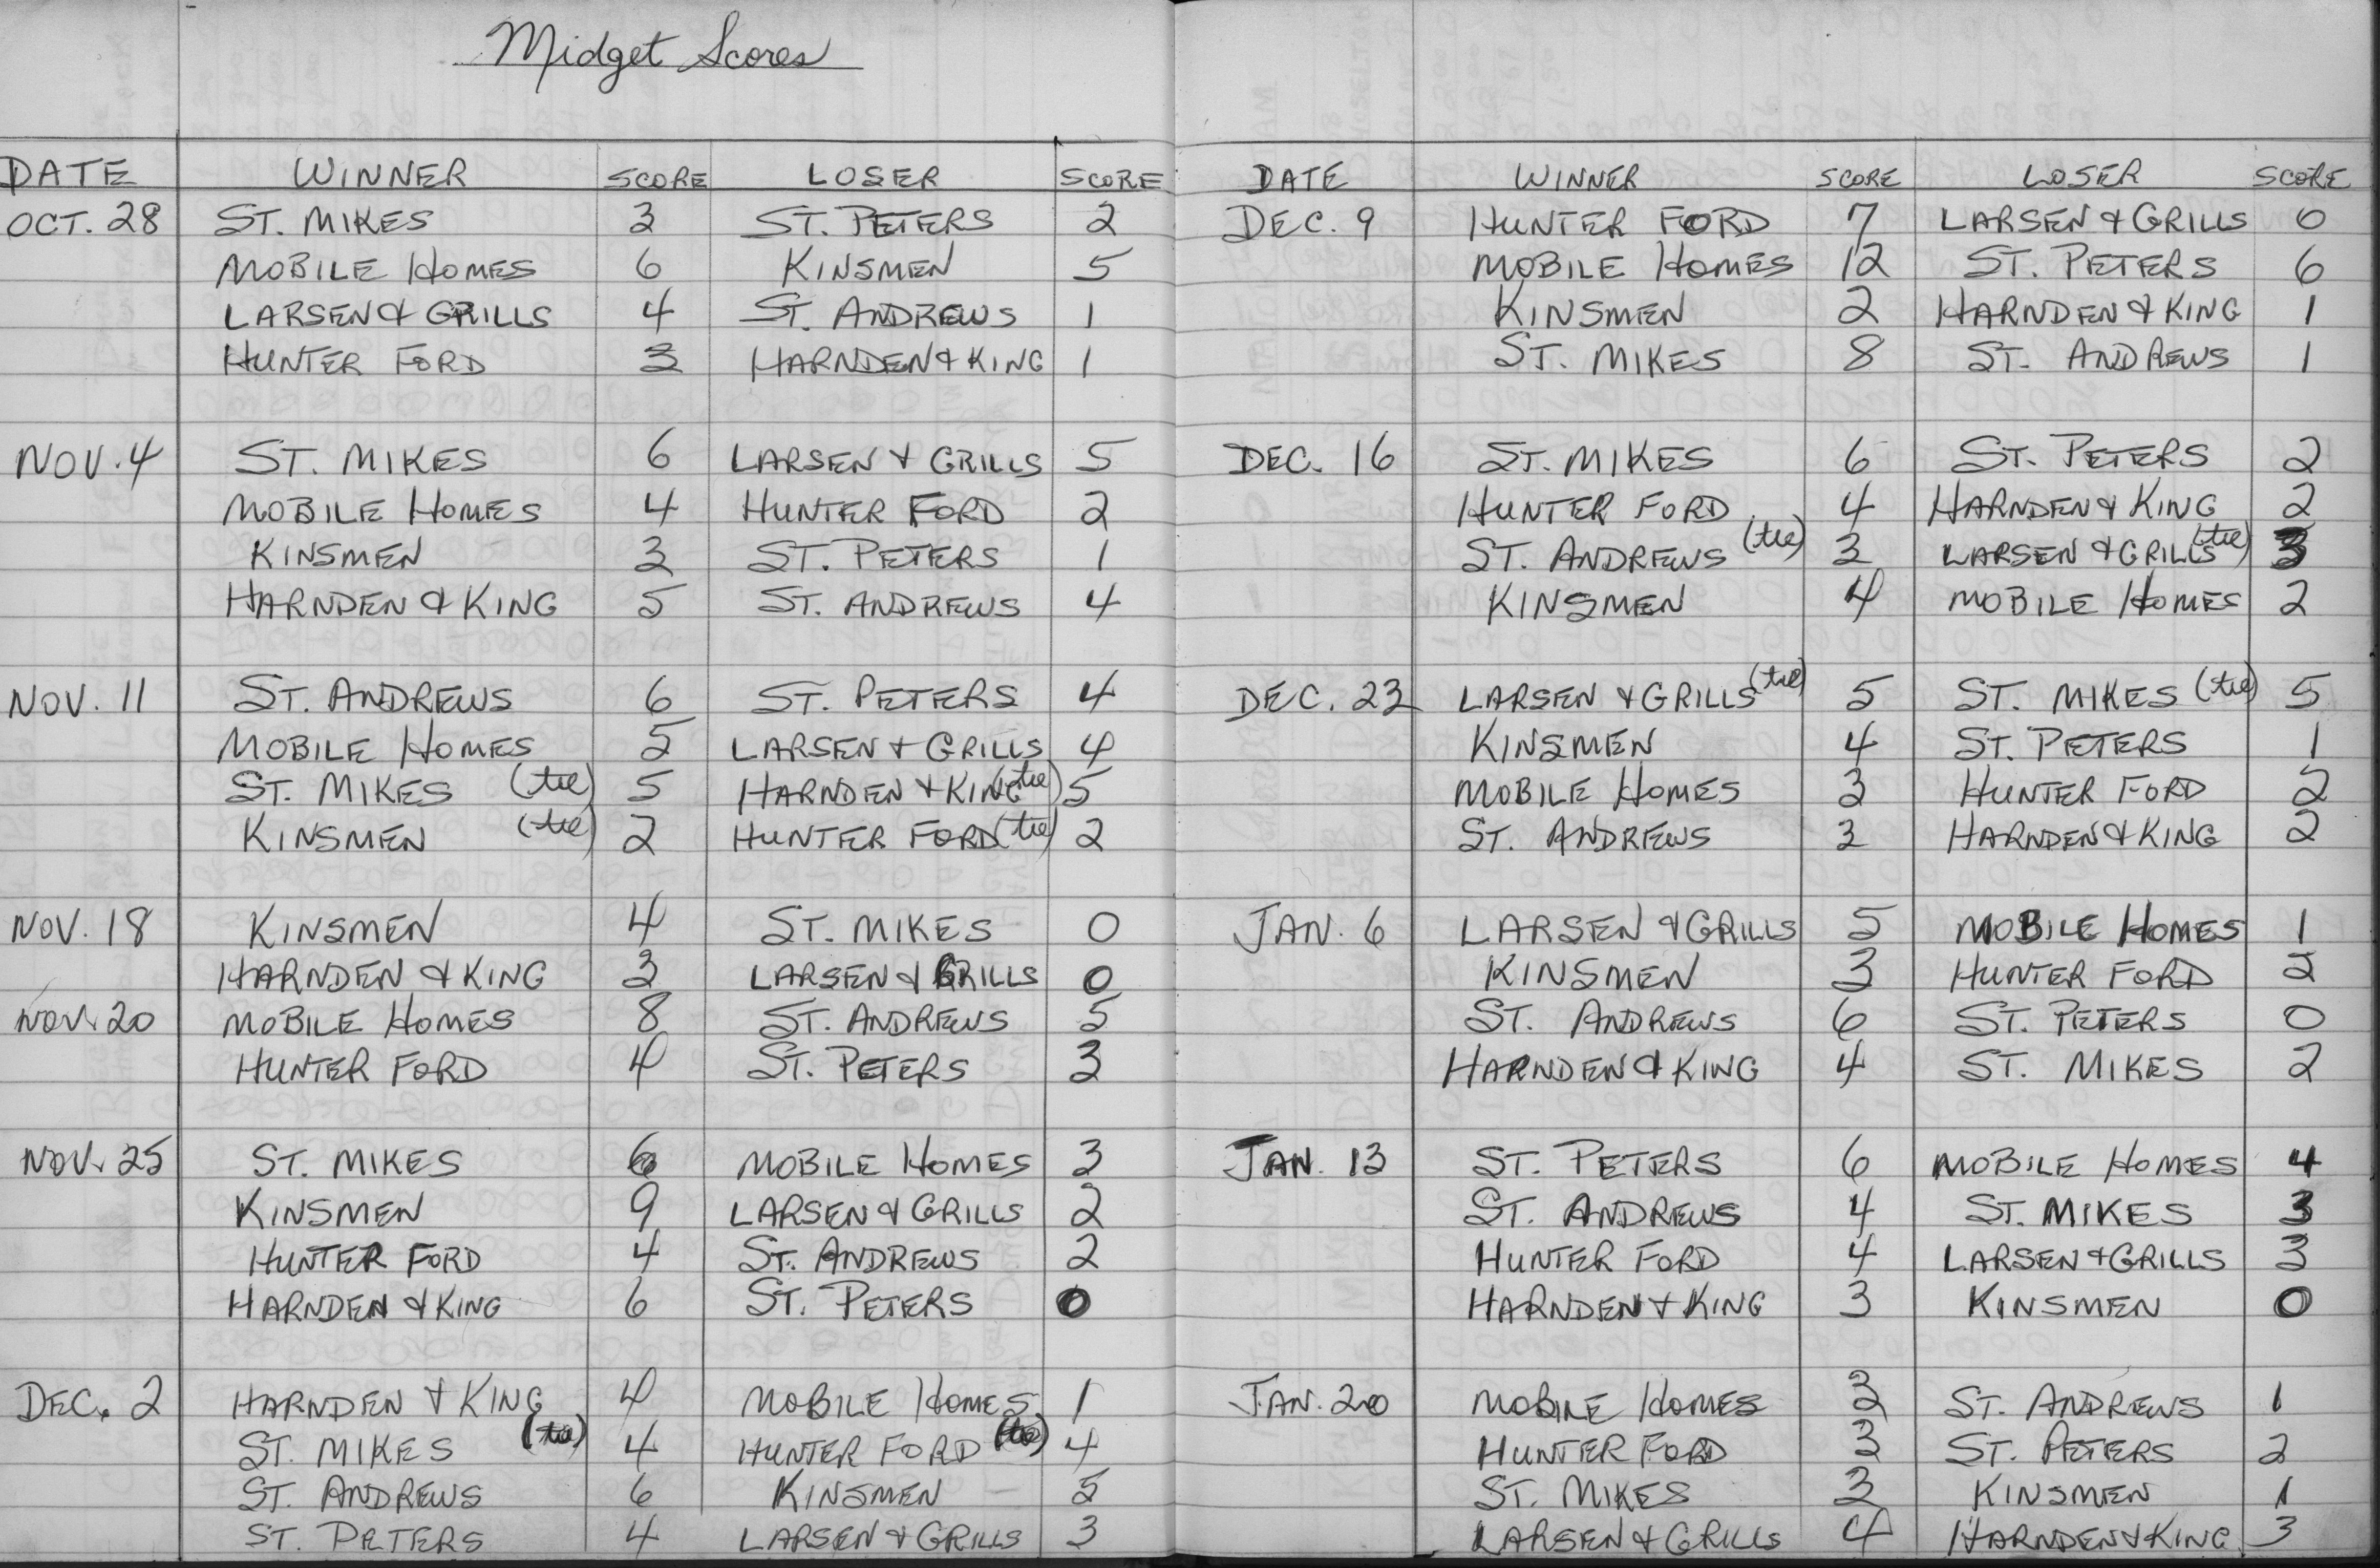 Midget Scores
DATE WINNER SCORE LOSER SCORE
OCT. 28 ST. MIKES 3 ST. PETERS 2
MOBILE HOMES 6 KINSMEN 5
LARSEN & GRILLS 4 ST. ANDREWS 1
HUNTER FORD 3 HARNDEN & KING 1
NOV. 4 ST. MIKES 6 LARSEN & GRILLS 5
MOBILE HOMES 4 HUNTER FORD 2
KINSMEN 3 ST. PETERS 1
HARNDEN & KING 5 ST. ANDREWS 4
NOV. 11 ST. ANDREWS 6 ST. PETERS 4
MOBILE HOMES 5 LARSEN & GRILLS 4
ST. MIKES (tie) 5 HARNDEN & KING (tie) 5
KINSMEN (tie) 2 HUNTER FORD (tie) 2
NOV. 18 KINSMEN 4 ST. MIKES 0
HARNDEN & KING 3 LARSEN & GRILLS 0
NOV. 20 MOBILE HOMES 8 ST. ANDREWS 5
HUNTER FORD 4 ST. PETERS 3
NOV. 25 ST. MIKES 6 MOBILE HOMES 3
KINSMEN 9 LARSEN & GRILLS 2
HUNTER FORD 4 ST. ANDREWS 2
HARNDEN & KING 6 ST. PETERS 0
DEC. 2 HARNDEN & KING 4 MOBILE HOMES 1
ST. MIKES (tie) 4 HUNTER FORD (tie) 4
ST. ANDREWS 6 KINSMEN 5
ST. PETERS 4 LARSEN & GRILLS 3
DATE WINNER SCORE LOSER SCORE
DEC. 9 HUNTER FORD 7 LARSEN & GRILLS 0
MOBILE HOMES 12 ST. PETERS 6
KINSMEN 2 HARNDEN & KING 1
ST. MIKES 8 ST. ANDREWS 1
DEC. 16 ST. MIKES 6 ST. PETERS 2
HUNTER FORD 4 HARNDEN & KING 2
ST. ANDREWS (tie) 3 LARSEN & GRILLS (tie) 3
KINSMEN 4 MOBILE HOMES 2
DEC. 23 LARSEN & GRILLS (tie) 5 ST. MIKES (tie) 5
KINSMEN 4 ST. PETERS 1
MOBILE HOMES 3 HUNTER FORD 2
ST. ANDREWS 3 HARNDEN & KING 2
JAN. 6 LARSEN & GRILLS 5 MOBILE HOMES 1
KINSMEN 3 HUNTER FORD 2
ST. ANDREWS 6 ST. PETERS 0
HARNDEN & KING 4 ST. MIKES 2
JAN. 13 ST. PETERS 6 MOBILE HOMES 4
ST. ANDREWS 4 ST. MIKES 3
HUNTER FORD 4 LARSEN & GRILLS 3
HARNDEN & KING 3 KINSMEN 0
JAN. 20 MOBILE HOMES 3 ST. ANDREWS 1
HUNTER FORD 3 ST. PETERS 2
ST. MIKES 3 KINSMEN 1
LARSEN & GRILLS 4 HARNDEN & KING 3